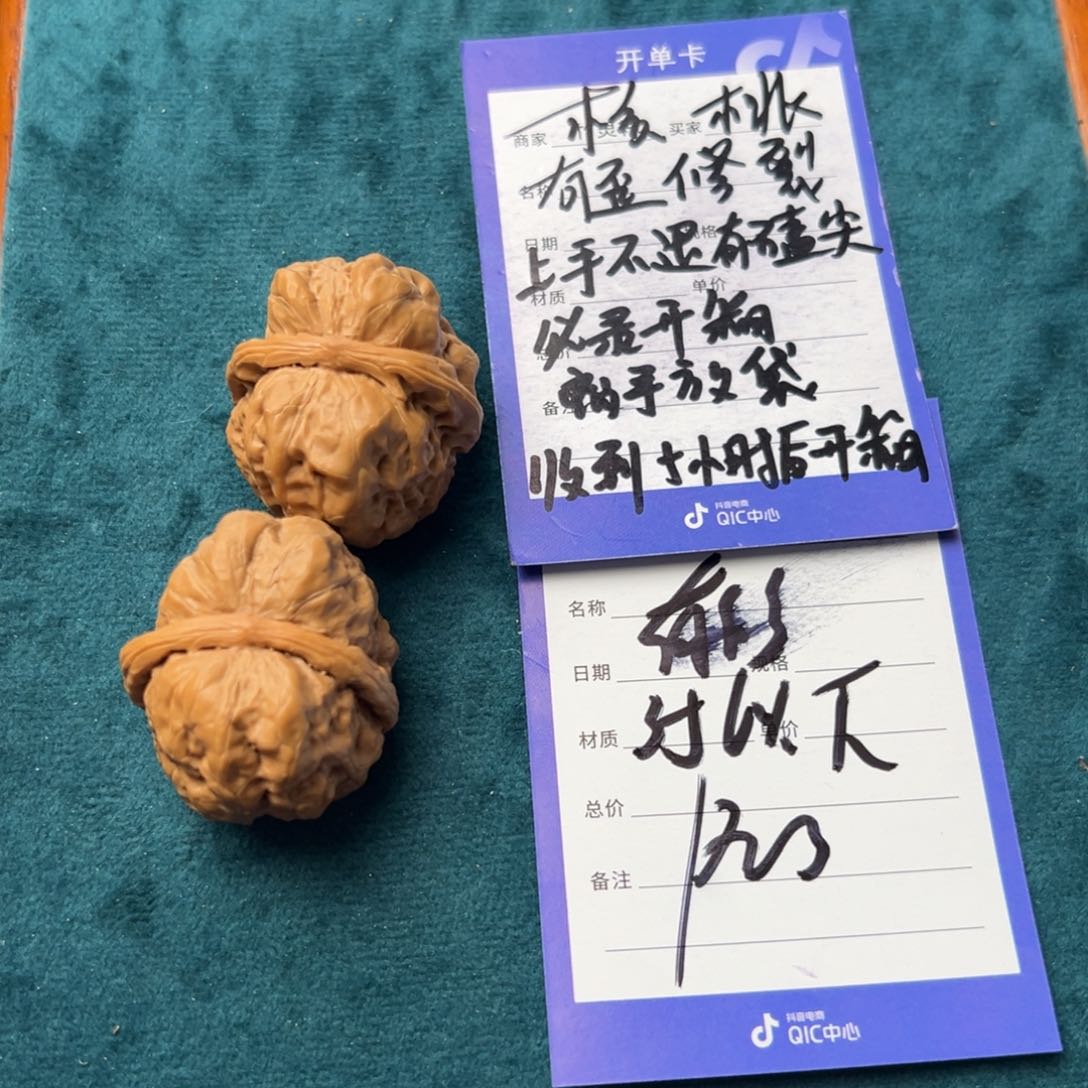 开单卡
商家 买家
核桃
名称
有歪修裂
日期 规格
上手不退有磕尖
材质 单价
必录开箱
总价
备注
收到 小时后开箱
抖音电商
QIC中心
名称
日期 规格
材质 单价
以下
总价
备注
抖音电商
QIC中心